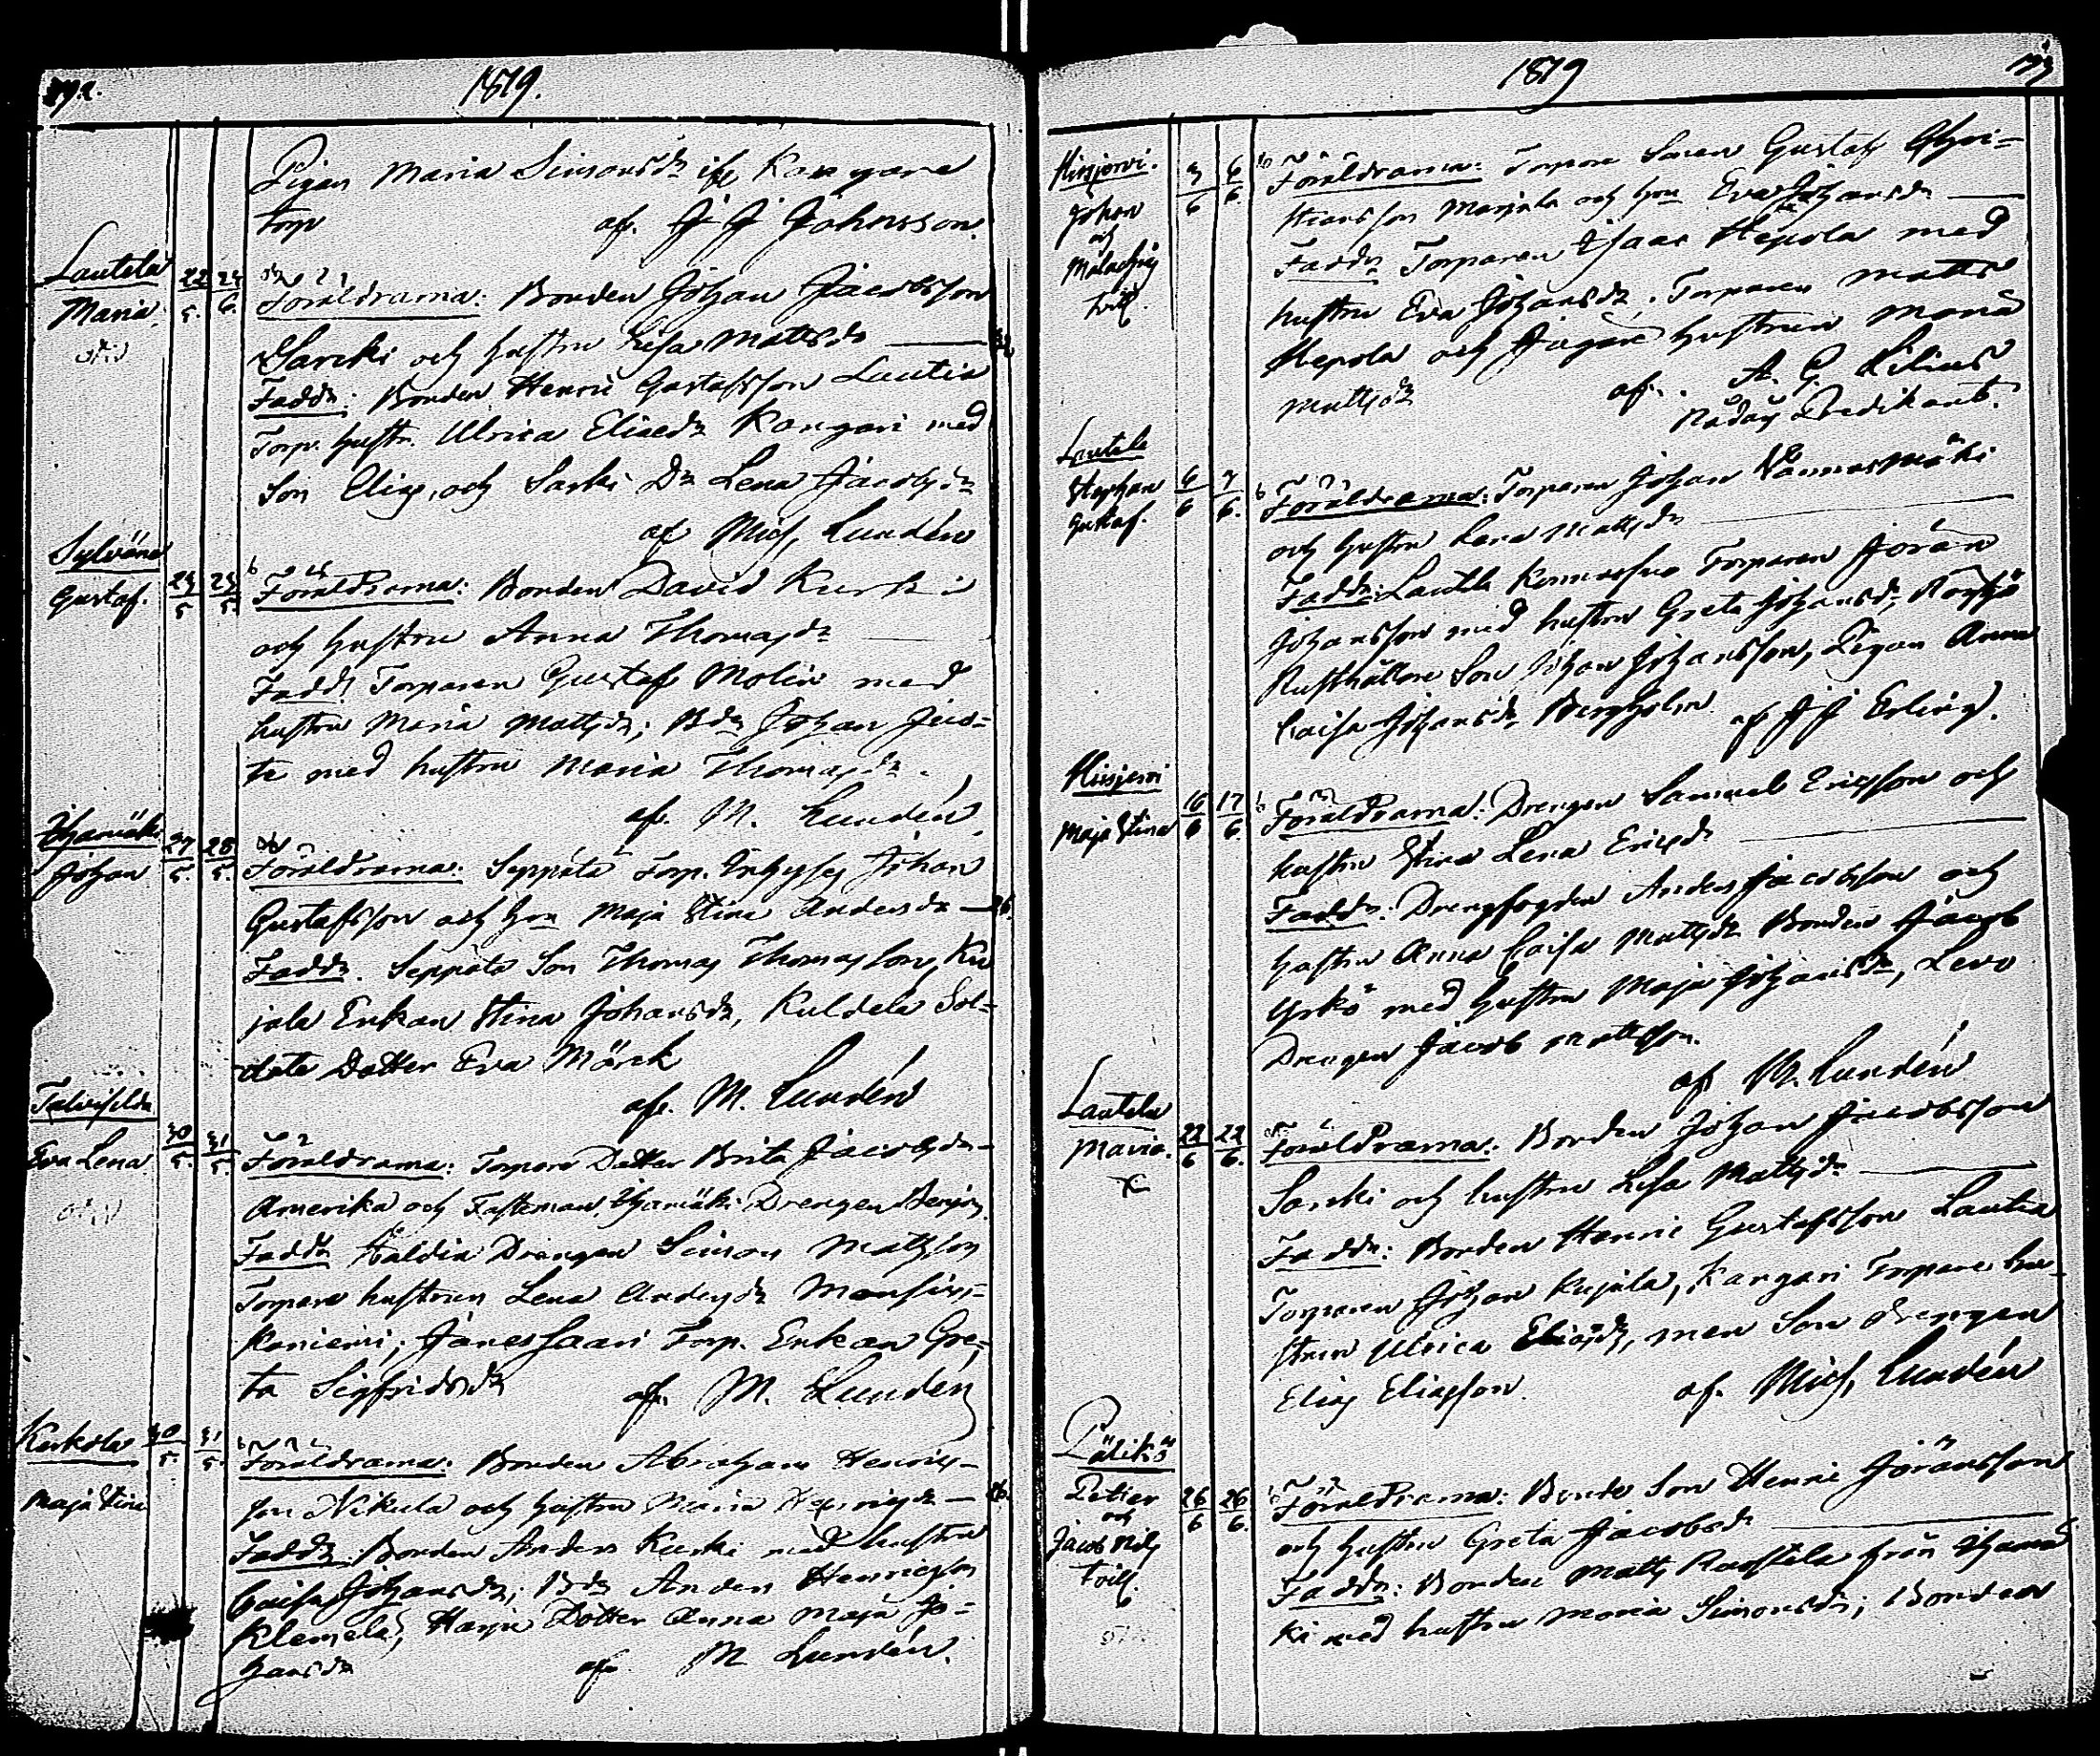 192.
1819.
Pigan Maria Simonsdr ifr. Kangare
torp af. J J Johnsson.
Lautela
Maria.
22/5. 24/6.
Föräldrarna: Bonden Johan Jacobsson
Sarcki och hustru Lisa Mattsdr
Faddr: Bonden Henric Gustafsson Lautia
Torp. hustr. Ulrica Eliaedr Kangari med
Son Elias, och Sarki Dr Lena Jacobsdr
af Mich. Lundén
Sylväne
Gustaf.
23/5 23/5
Föräldrarna: Bonden David Kurki
och hustru Anna Thomasdr
Fadd. Torparen Gustaf Molin med
hustru Maria Mattsdr; Bdn Johan Jus=
te med hustru Maria Thomasdr.
af. M. Lundén
Yhamäki
Johan
27/5. 28/5.
Föräldrarna: Seppälä Torp. Inhyses Johan
Gustafsson och hon Maja Stina Andersdr
Faddr. Seppälä Son Thomas Thomasson, Ku
jala Enkan Stina Johansdr, Kuldela Sol=
date Dotter Eva Mörck
af. M. Lundén
Eva Lena
30/5. 31/5.
Föräldrarna: Torpare Dotter Brita Jacobsdr
Amerika och Fasteman Yhamäki Drengen Benj.
Faddr Haldin Drengen Simon Mattsson
Torpare hustrun Lena Andersdr Mansis=
kaniemi; Jänessaari Torp. Enkan Gre=
ta Sigfridsdr af. M. Lundén
Karkola
Maja Stina
30/5. 31/5.
Föräldrarna: Bonden Abraham Henrics=
son Nikula och hustru Maria Henricsdr
Faddr: Bonden Anders Kurki med hustru
Caisa Johansdr; Bdn Anders Henricsson
Klemelä, Harju Dotter Anna Maja Jo=
hansdr af M Lundén.
1819
193
Hirsjervi.
Johan
och
Malachias
tvill.
3/6 6/6
Föräldrarna: Torpare Sonen Gustaf Chri=
stiansson Marjala och hon Eva Johansdr
Faddr Torparen Isaac Hepola med
hustru Eva Johansdr. Torparen Matts
Hepola och Jägare hustrun Maria
Mattsdr af. A. G. Lilius
Nådårs Predikant.
Lautela
Stephan
Gustaf.
6/6 7/6.
Föräldrarna: Torparen Johan Wannasmäki
och hustru Lena Mattsdr
Faddr: Lautela Torparen Jöran
Johansson med hustru Greta Johansdr,
Rusthållare Son Johan Johansson, Pigan Anna
Caisa Johansdr Bergholm af J J Erling.
Hirsjervi
Maja Stina
16/6 17/6.
Föräldrarna: Drengen Samuel Ericsson och
hustru Stina Lena Ericsdr
Faddr: Drengfogden Anders Jacobsson och
hustru Anna Caisa Mattsdr Bonden Jacob
Yrkö med hustru Maja Johansdr, Levo
Drengen Jacob Mattsson.
af M. Lundén
Lautela
Maria.
22/6 22/6.
Föräldrarna: Bonden Johan Jacobsson
Sarcki och hustru Lisa Mattsdr
Faddr: Bonden Henric Gustafsson Lautia
Torparen Johan Kujala, Kangari Torpare hu=
strun Ulrica Eliasdr, men Son Drengen
Elias Eliasson. af. Mich. Lundén
Pälikö
Petter
och
Jacob Nils
tvill.
26/6 26/6.
Föräldrarna: Bonde Son Henric Jöransson
och hustru Greta Jacobsdr
Faddr: Bonden Matts Raostela från Yhamä
ki med hustru Maria Simonsdr; Bonden